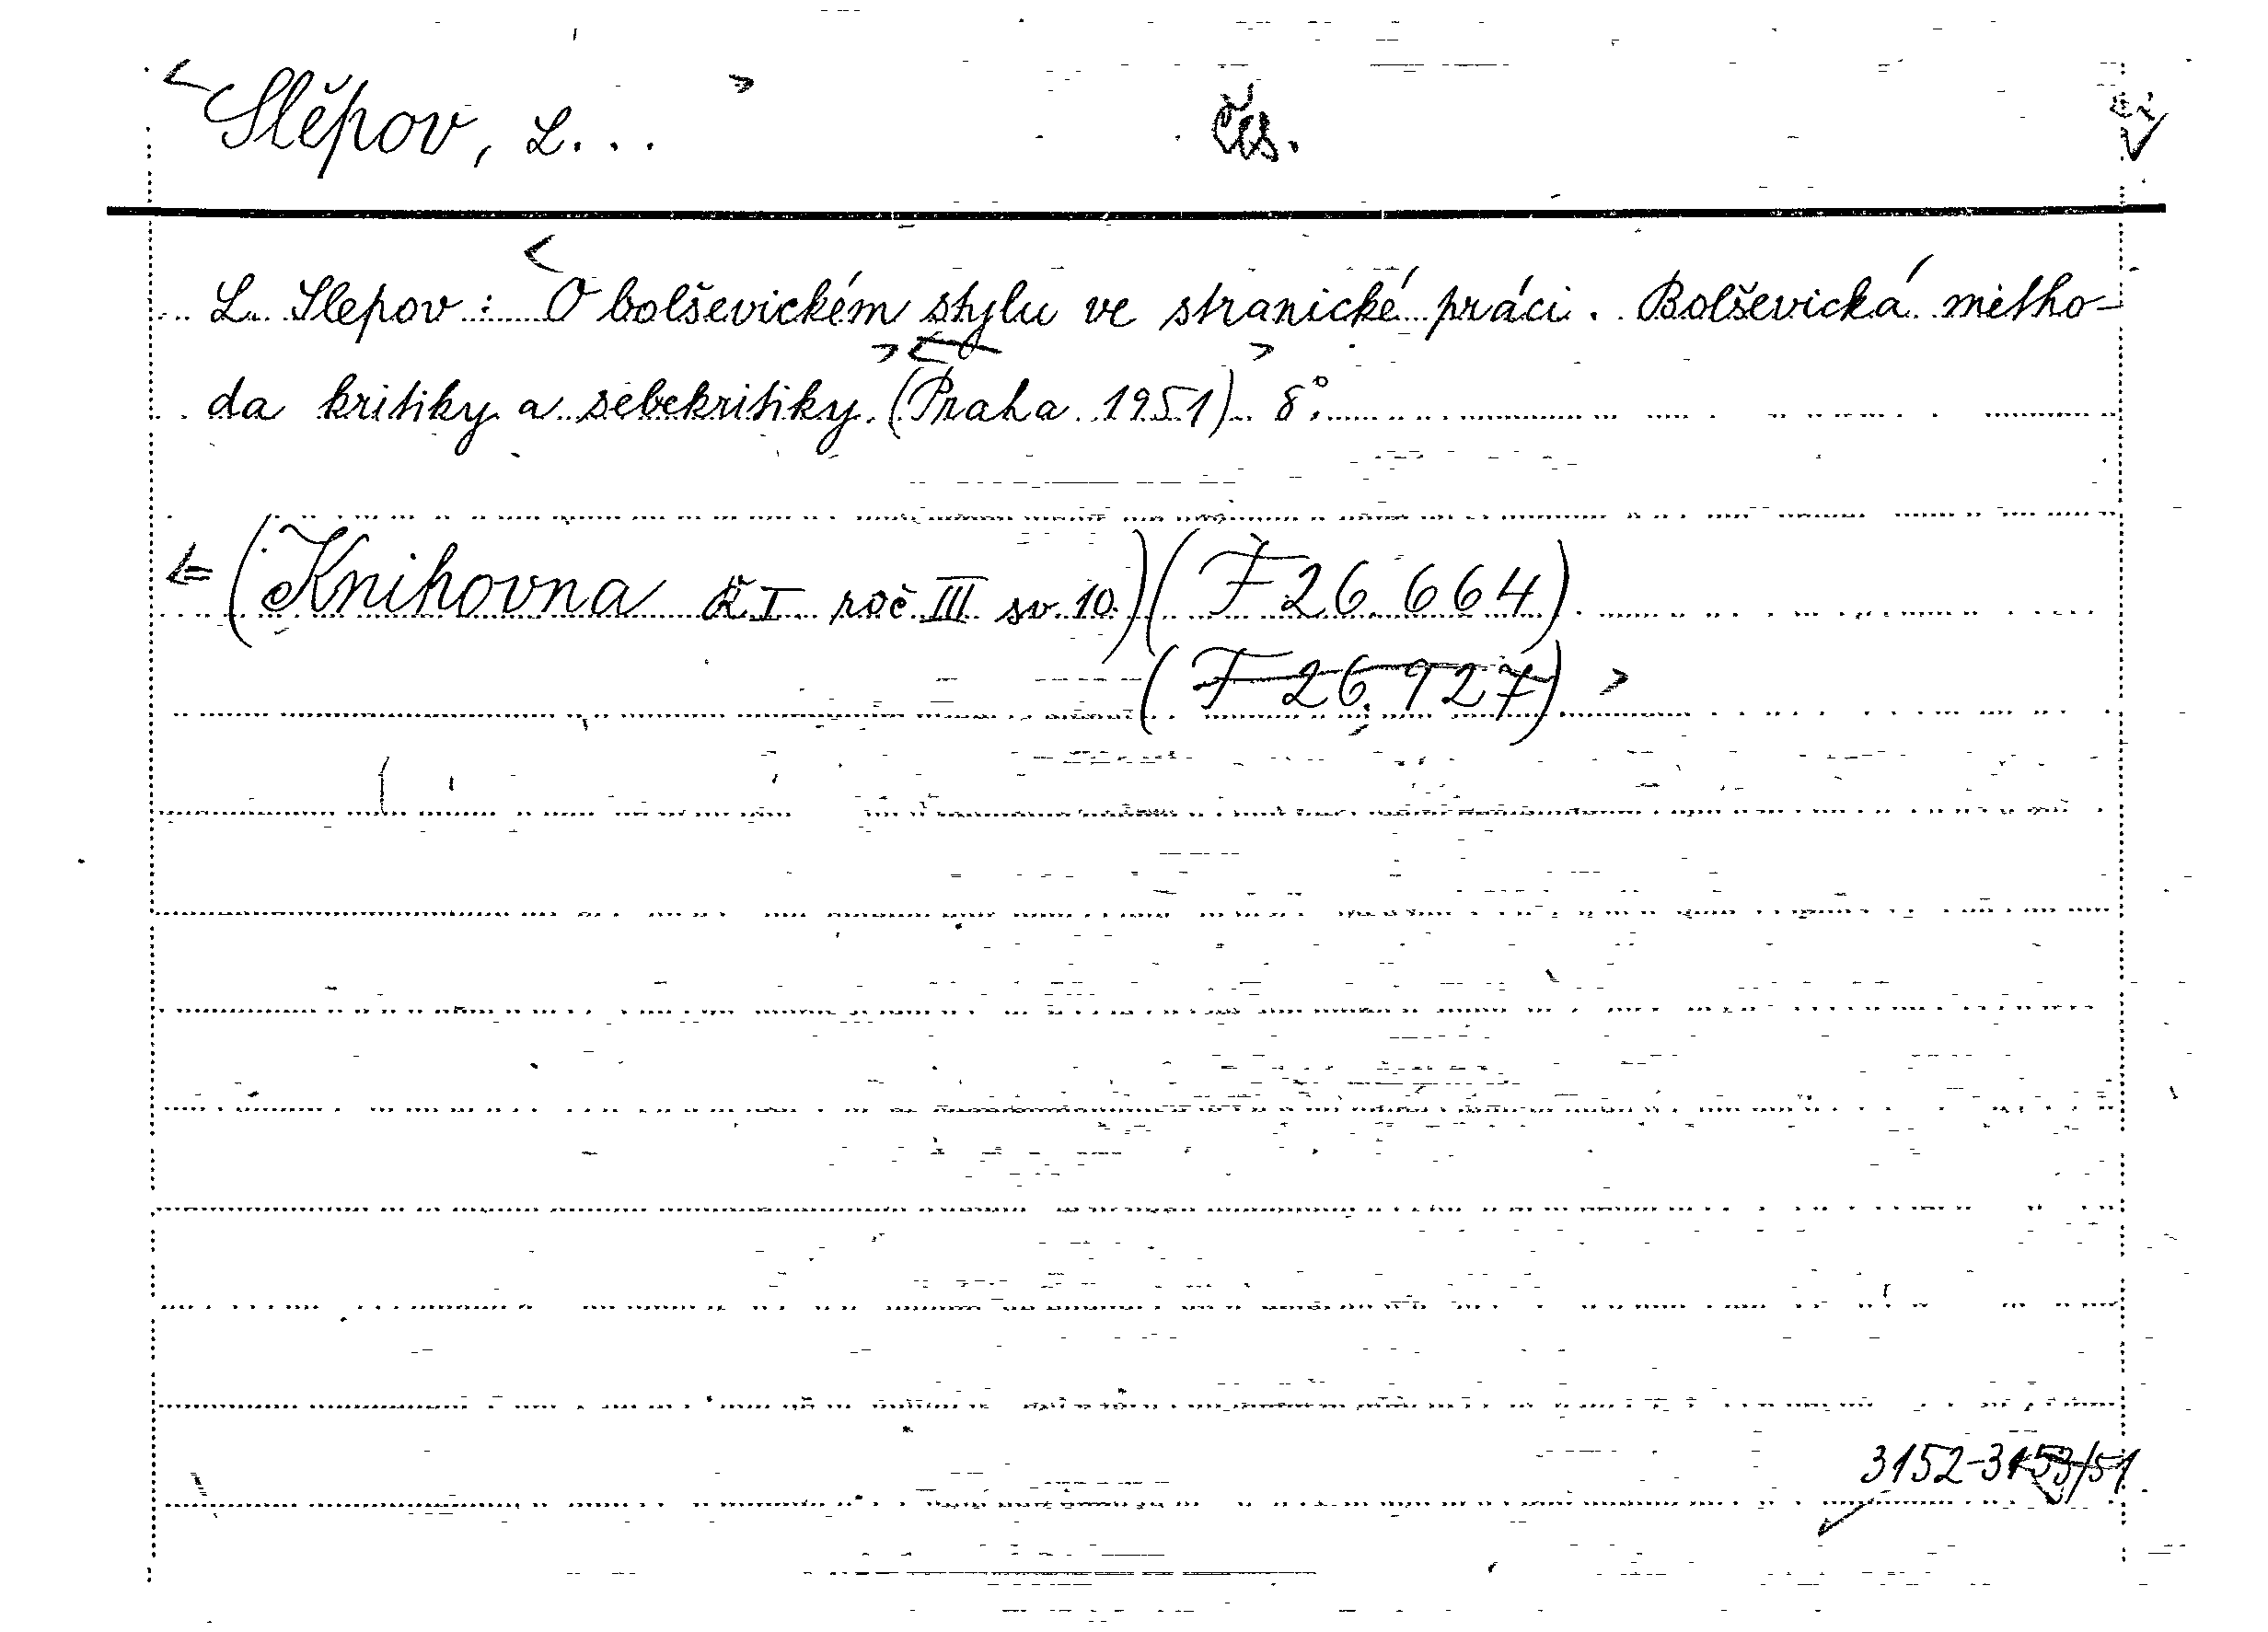 Slěpov, L...
L. Slepov: O bolševickém stylu ve stranické práci. Bolševická metho-
da kritiky a sebekritiky. (Praha 1951) 8°.
(Knihovna ČI roč III sv. 10.) (F 26.664)
(F 26.927)
3152-3153/51